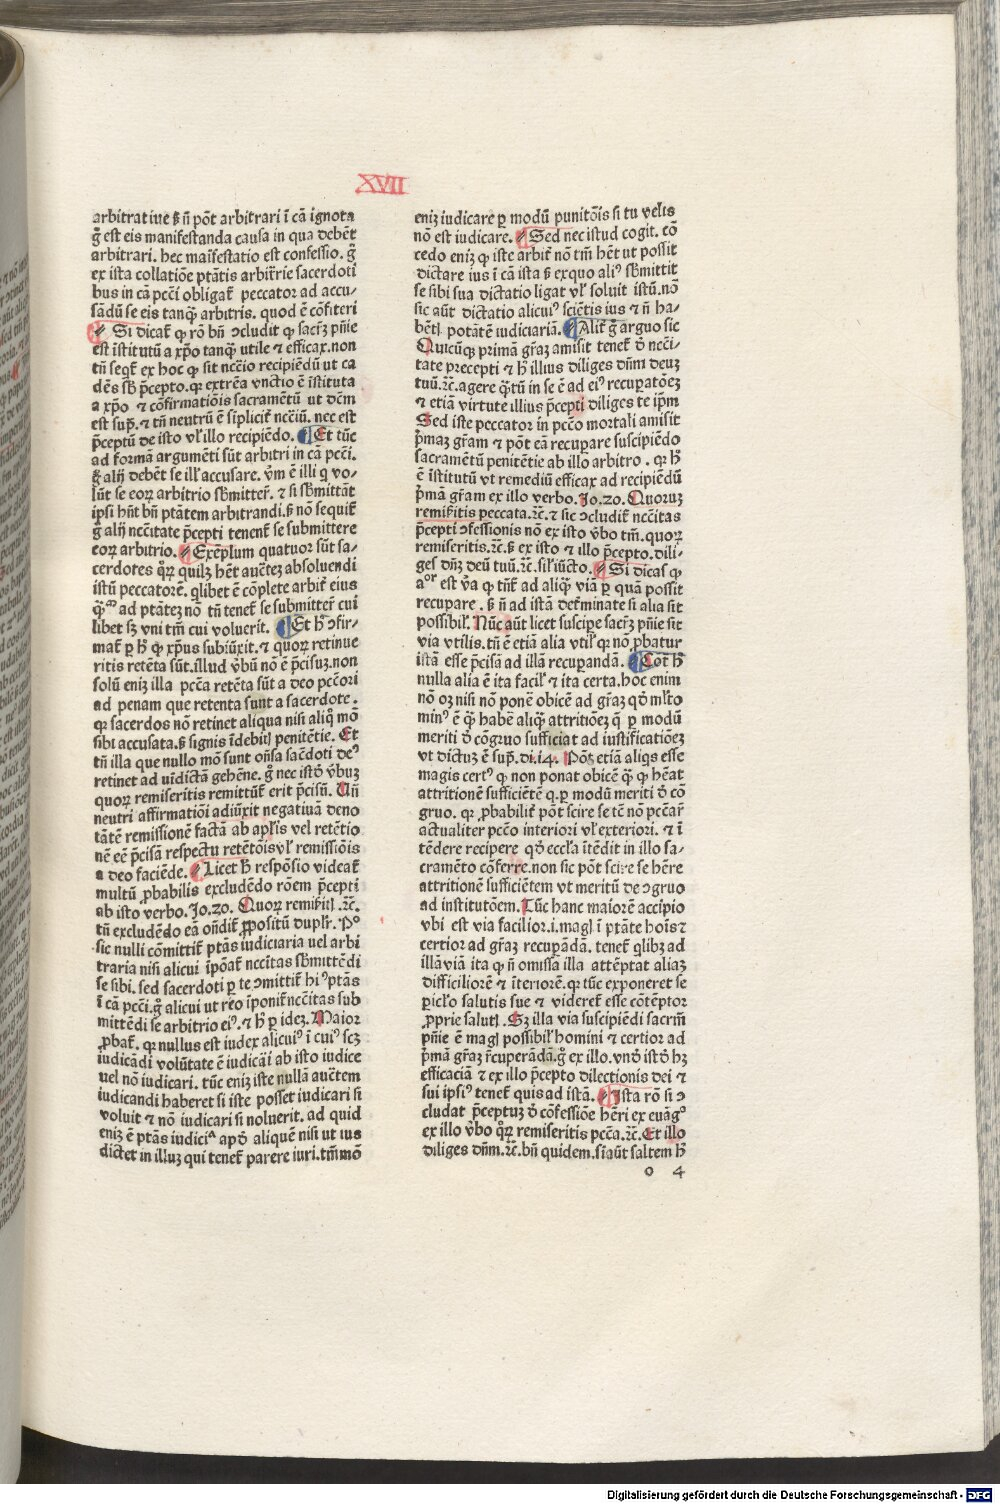 XVII
arbitratiue ꝫ n̄ pōt arbitrari ī cā ignota
g̊ est eis manifestanda causa in qua debēt
arbitrari. hec maifestatio est confessio. g̊
ex ista collatiōe ptātis arbiẗrie sacerdoti
bus in cā pcc̄i obligat᷑ peccator ad accu-
sādū se eis tanq̄ arbitris. quod ē cōfiteri
Si dicat᷑ ꝙ rō bn̄ ↄcludit ꝙ sacr̄ꝫ pn̄ie
est īstitutū a xp̄o tanq̄ utile ⁊ efficax. non
tn̄ seqt᷑ ex hoc ꝙ sit nccēio recipiēdū ut ca
dēs sb̄ p̄cepto. qꝛ extrēa vnctio ē īstituta
a xp̄o ⁊ cōfirmatiōis sacramētū ut dcm̄
est sup̄. ⁊ tn̄ neutrū ē siplicit᷑ nccīū. nec est
p̄ceptū de isto vl̓ illo recipiēdo. Et tūc
ad formā argumēti sūt arbitri in cā pcc̄i.
g̊ alij debēt se ill̓ accusare. v̄m ē illi q vo-
lūt se eoꝝ arbitrio sb̄mitter̄. ⁊ si sb̄mittāt
ipsi hn̄t bn̄ ptātem arbitrandi. ꝫ nō sequit᷑
g̊ alij nccītate p̄cepti tenent᷑ se submittere
eoꝝ arbitrio. Exēplum quatuor sūt sa-
cerdotes qꝝ quilꝫ hēt auc̄teꝫ absoluendi
istū peccatorē. qlibet ē cōplete arbit᷑ eius
ad ptāteꝫ nō tn̄ tenet᷑ se submitter̄ cui
libet sꝫ vni tm̄ cui voluerit. Et h̄ ↄfir-
mat᷑ ꝑ h̄ ꝙ xp̄us subiūxit. ⁊ quoꝝ retinue
ritis retēta sūt. illud v̄bū nō ē p̄cisuꝫ. non
solū eniꝫ illa pcc̄a retēta sūt a deo pcc̄ori
ad penam que retenta sunt a sacerdote.
qꝛ sacerdos nō retinet aliqua nisi aliq̊ mō
sibi accusata. ꝫ signis īdebitꝭ penitētie. Et
tn̄ illa que nullo mō sunt on̄sa sac̄doti deꝰ
retinet ad uīdictā gehēne. g̊ nec istd̄ v̄buꝫ
quoꝝ remiseritis remittūt᷑ erit p̄cisū. Un̄
neutri affirmatiōi adiūxit negatiuā deno
tātē remissionē factā ab apl̓is vel retētio
nē eē p̄cisā respectu retētōis vl̓ remissiōis
a deo faciēde. Licet h̄ respōsio videat᷑
multū ꝓbabilis excludēdo rōem p̄cepti
ab isto verbo. Jo. 20. Quoꝝ remiẗitꝭ .ꝛc̄.
tn̄ excludēdo eā on̄dit᷑ ꝓpositū duplr̄. Pͦ
sic nulli cōmittit᷑ ptās iudiciaria uel arbi
traria nisi alicui īpōat᷑ nccītas sb̄mittēdi
se sibi. sed sacerdoti ꝑ te ↄmittit᷑ hiꝰ ptās
ī cā pcc̄i. g̊ alicui ut reo īponit᷑ nccītas sub
mittēdi se arbitrio eiꝰ. ⁊ h̄ ꝑ ideꝫ. Maior
ꝓbat᷑. qꝛ nullus est iudex alicuiꝰ ī cuiꝰ scꝫ
iudicādi volūtate ē iudicāi ab isto iudice
uel nō iudicari. tūc eniꝫ iste nullā auc̄tem
iudicandi haberet si iste posset iudicari si
voluit ⁊ nō iudicari si noluerit. ad quid
eniꝫ ē ptās iudiciᵃ apd̄ aliquē nisi ut ius
dictet in illuꝫ qui tenet᷑ parere iuri. tm̄mō
eniꝫ iudicare ꝑ modū punitōis si tu velis
nō est iudicare. Sed nec istud cogit. cō
cedo eniꝫ ꝙ iste arbit᷑ nō tm̄ hēt ut possit
dictare ius ī cā ista ꝫ exquo aliꝰ sb̄mittit
se sibi sua dictatio ligat vl̓ soluit istū. nō
sic aūt dictatio alicuiꝰ sciētis ius ⁊ n̄ ha-
bētꝭ potātē iudiciariā. Alit᷑ g̊ arguo sic
Quicūqꝫ primā gr̄aꝫ amisit tenet᷑ d̄ nccī-
tate precepti ⁊ h̄ illius diliges dn̄m deuꝫ
tuū. ꝛc̄. agere q̄tū in se ē ad eiꝰ recupatōeꝫ
⁊ etiā virtute illius p̄cepti diliges te ip̄m
Sed iste peccator in pcc̄o mortali amisit
p̄maꝫ gr̄am ⁊ pōt eā recupare suscipiēdo
sacramētū penitētie ab illo arbitro. qꝛ h̄
ē īstitutū vt remediū efficax ad recipiēdū
p̄mā gr̄am ex illo verbo. Jo. 20. Quoruꝫ
remiẗitis peccata. ꝛc̄. ⁊ sic ↄcludit᷑ nccītas
p̄cepti ↄfessionis nō ex isto v̄bo tm̄. quoꝝ
remiseritis. ꝛc̄. ꝫ ex isto ⁊ illo p̄cepto. dili-
ges dn̄ꝫ deū tuū. ꝛc̄. sil̓ iūcto. Si dicas ꝙ
est v̄a ꝙ tn̄t᷑ ad aliq̄ viā ꝑ quā possit
recupare. ꝫ n̄ ad istā det᷑minate si alia sit
possibil̓. Nūc aūt licet suscipe sacr̄ꝫ pn̄ie sit
via vtilis. tn̄ ē etiā alia vtil̓ qꝛ nō ꝓbatur
istā esse p̄cisā ad illā recupandā. Cōt h̄
nulla alia ē ita facil̓ ⁊ ita certa. hoc enim
nō oꝫ nisi nō ponē obicē ad gr̄aꝫ qd̄ ml̓to
minꝰ ē q̄ habē aliq̄ attritiōeꝫ q̄ ꝑ modū
meriti d̄ cōgruo sufficiat ad iustificatiōeꝫ
vt dictuꝫ ē sup̄. di. 14. Pōꝫ etiā aliqs esse
magis certꝰ ꝙ non ponat obicē q̄ ꝙ hēat
attritionē sufficiētē q. ꝑ modū meriti d̄ cō
gruo. qꝛ ꝓbabilit᷑ pōt scire se tē nō pēcar̄
actualiter pcc̄o interiori vl̓ exteriori. ⁊ ī
tēdere recipere qd̄ eccl̓a ītēdit in illo sa-
cramēto cōferre. non sic pōt scire se hēre
attritionē sufficiētem vt meritū de ↄgruo
ad institutōem. Tūc hanc maiorē accipio
vbi est via facilior. i. magꝭ ī ptāte hoīs ⁊
certior ad gr̄aꝫ recupādā. tenet᷑ qlibꝫ ad
illā viā ita ꝙ n̄ omissa illa attēptat aliaꝫ
difficiliorē ⁊ īteriorē. qꝛ tūc exponeret se
ꝑicl̓o salutis sue ⁊ videret᷑ esse cōtēptor
ꝓprie salutꝭ. Sꝫ illa via suscipiēdi sacrm̄
pn̄ie ē magꝭ possibil̓ homini ⁊ certior ad
p̄mā gr̄aꝫ r̄cuperādā. g̊ ex illo. vnd̄ istd̄ hꝫ
efficaciā ⁊ ex illo p̄cepto dilectionis dei ⁊
sui ipsiꝰ tenet᷑ quis ad istā. Ista rō si ↄ
cludat p̄ceptuꝫ d̄ cōfessiōe hēri ex euāgͦ
ex illo v̄bo qꝝ remiseritis pcc̄a. ꝛc̄. Et illo
diliges dn̄m. ꝛc̄. bn̄ quidem. si aūt saltem h̄
o 4
Digitalisierung gefördert durch die Deutsche Forschungsgemeinschaft - DFG